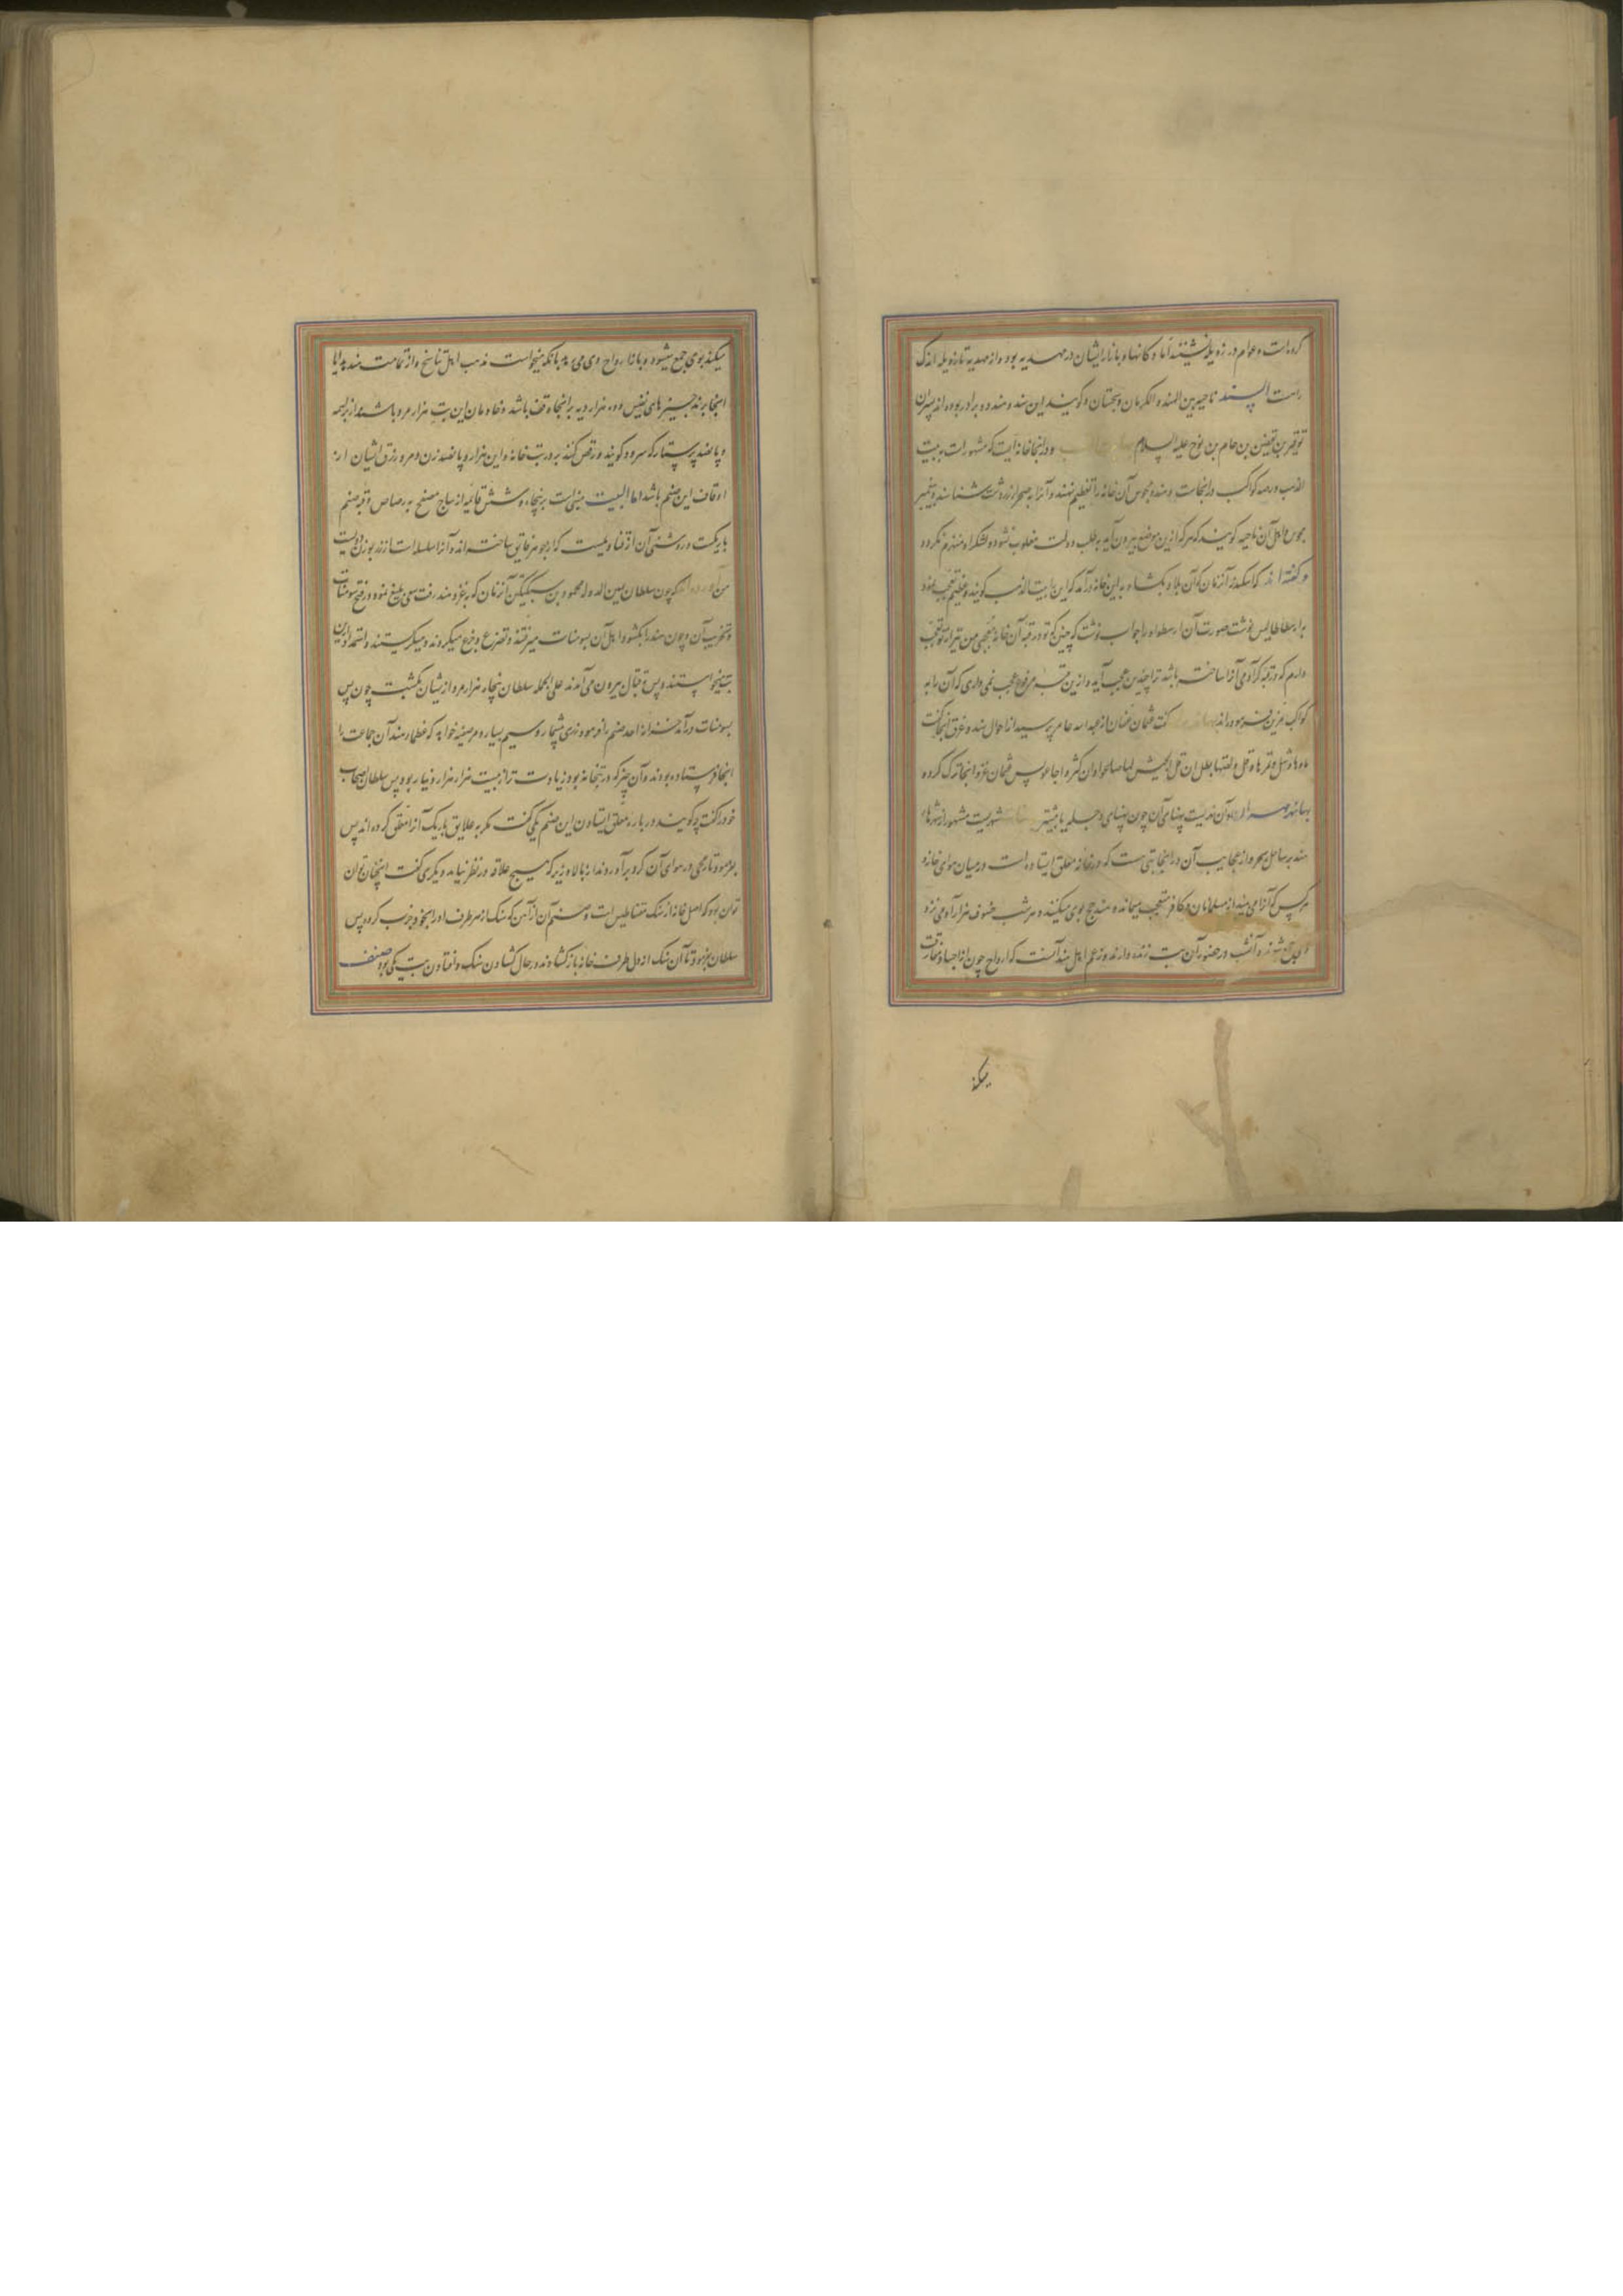 کرده است و عوام در زویله نشینند اما دکانها و بازار ایشان در مهدیه بود و از مهدیه تا زویله اندک
است السند ناحیه بین الهند و الکرمان و سجستان و گویند این سند و هند دو برادر بوده اند پسران
توقیر بن یقطن بن حام بن نوح علیه السلام و در آنجا خانه ایست که مشهور است به بیت
الذهب و رصد کواکب در آنجاست و هند و مجوس آن خانه را تعظیم نهند و آنرا به صحرا زردشت شناسند و پیغمبر
مجوس و اهل آن ناحیه گویند که هر که ازین موضع بیرون آید به طلب دولت مغلوب نشود و لشکر او منهزم نگردد
و گفته اند که اسکندر آن زمان که آن بلاد بگشاد به این خانه درآمد که این را بیت الذهب گویند و عظیم تعجب نمود
بارسطاطالیس نوشت صورت آن ارسطو او را جواب نوشت که چنین که تو در قبه آن خانه متعجبی من نیز از تو تعجب
دارم که در قبه که آدمی آنرا ساخته باشد ترا چندین عجب آید و ازین قبه مرفوع عجب نمی داری که آن را به
کواکب مزین فرموده اند گفت عثمان عفان از عبد الله عامر پرسید از احوال سند و عراق آنجا گفت
ماءها وشل و تمرها دقل و لصها بطل ان قل الجیش بها ضاعوا و ان کثروا جاعوا پس عثمان غزو آنجا ترک کرد
مهران آن ندیست پهنای آن چون پهنای دجله یا بیشتر شهریست مشهور از شهرهای
هند بر ساحل بحر و از عجایب آن در آنجا بتی هست که در خانه معلق ایستاده است در میان هوای خانه و
هر کس که آنرا می بیند از مسلمانان و کافر متعجب میماند و هند حج بوی میکنند و هر شب خسوف هزار آدمی نزد
وی جمع شوند و آن شب در حضور آن بت زنده دارند و زعم اهل هند آنست که ارواح چون از اجساد مفارقت
میکند
میکند بوی جمع میشود و باز ارواح وی می دهد بآنکه میخواست مذهب اهل تناسخ و از تمامت هند هدایا
آنجا برند چیزهای نفیس و ده هزار دیه بر آنجا وقف باشد و خادمان این بت هزار مرد باشند از برهمه
و پانصد پرستار که سرود گویند و رقص کنند بر در بت خانه و این هزار و پانصد زن و مرد رزق ایشان از
اوقاف این صنم باشد اما البیت مبنی است بر پنجاه و شش قائمه از ساج مصفح به رصاص و قبه صنم
تاریکست و روشنی آن از قنادیلیست که از جوهر فایق ساخته اند و آنرا سلسله است از زر بوزن دویست
من که چون سلطان یمین الدوله محمود بن سبکتکین آن زمان که به غزو هند رفت سعی بلیغ نمود در فتح سومنات
و تخریب آن و چون هند را بگشود اهل آن بسومنات میرفتند و تضرع و جزع میکردند و میگریستند و استمداد ازین
بت میخواستند و پس به قتال بیرون می آمدند علی الجمله سلطان پنجاه هزار مرد از ایشان بکشت چون پس
بسومنات درآمد خزانه احد صنم را فرمود زری بیشمار و سیم بسیار و مرصعینه خوابه که عظماء هند آن جماعت را
آنجا فرستاده بودند و آن چیز که در بتخانه بود زیادت تر از بیست هزار هزار دینار بود پس سلطان اصحاب
خود را گفت چه گویند در باره معلق ایستادن این صنم یکی گفت مگر به علایق باریک آنرا معلق کرده اند پس
بفرمود تا رمحی در هوای آن گرد برآوردند از بالا و زیر که هیچ علاقه در نظر نیاید دیگری گفت اینچنان توان
توان بود که اصل خانه از سنگ مغناطیس است و صنم آن از آهن که سنگ از هر طرف او را بخود جذب کرده پس
سلطان بفرمود تا آن سنگ از دل طرف خانه باز کشادند در حال کشادن سنگ و افتادن بت یکی بود صنف